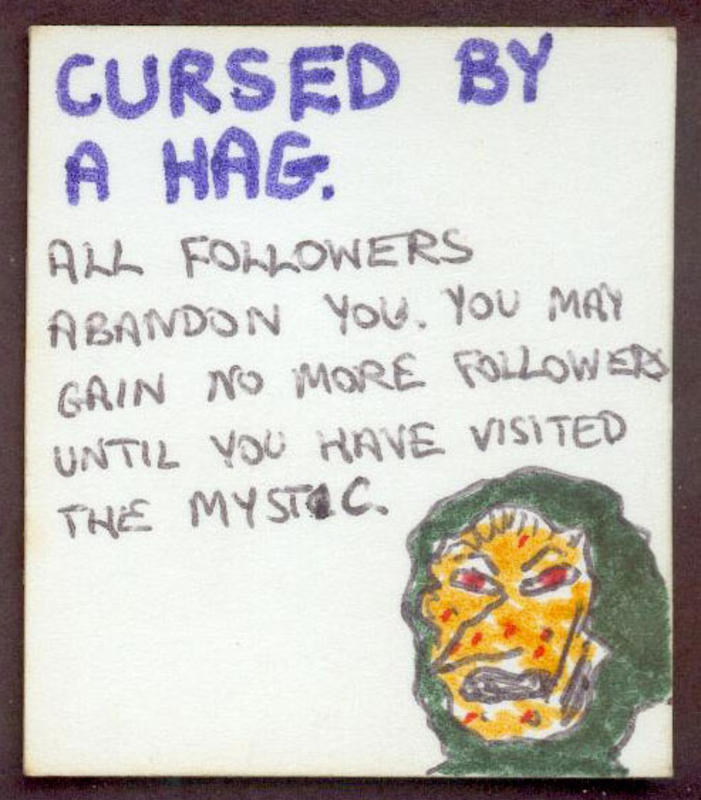 CURSED BY
A HAG.
ALL FOLLOWERS
ABANDON YOU. YOU MAY
GAIN NO MORE FOLLOWERS
UNTIL YOU HAVE VISITED
THE MYSTIC.